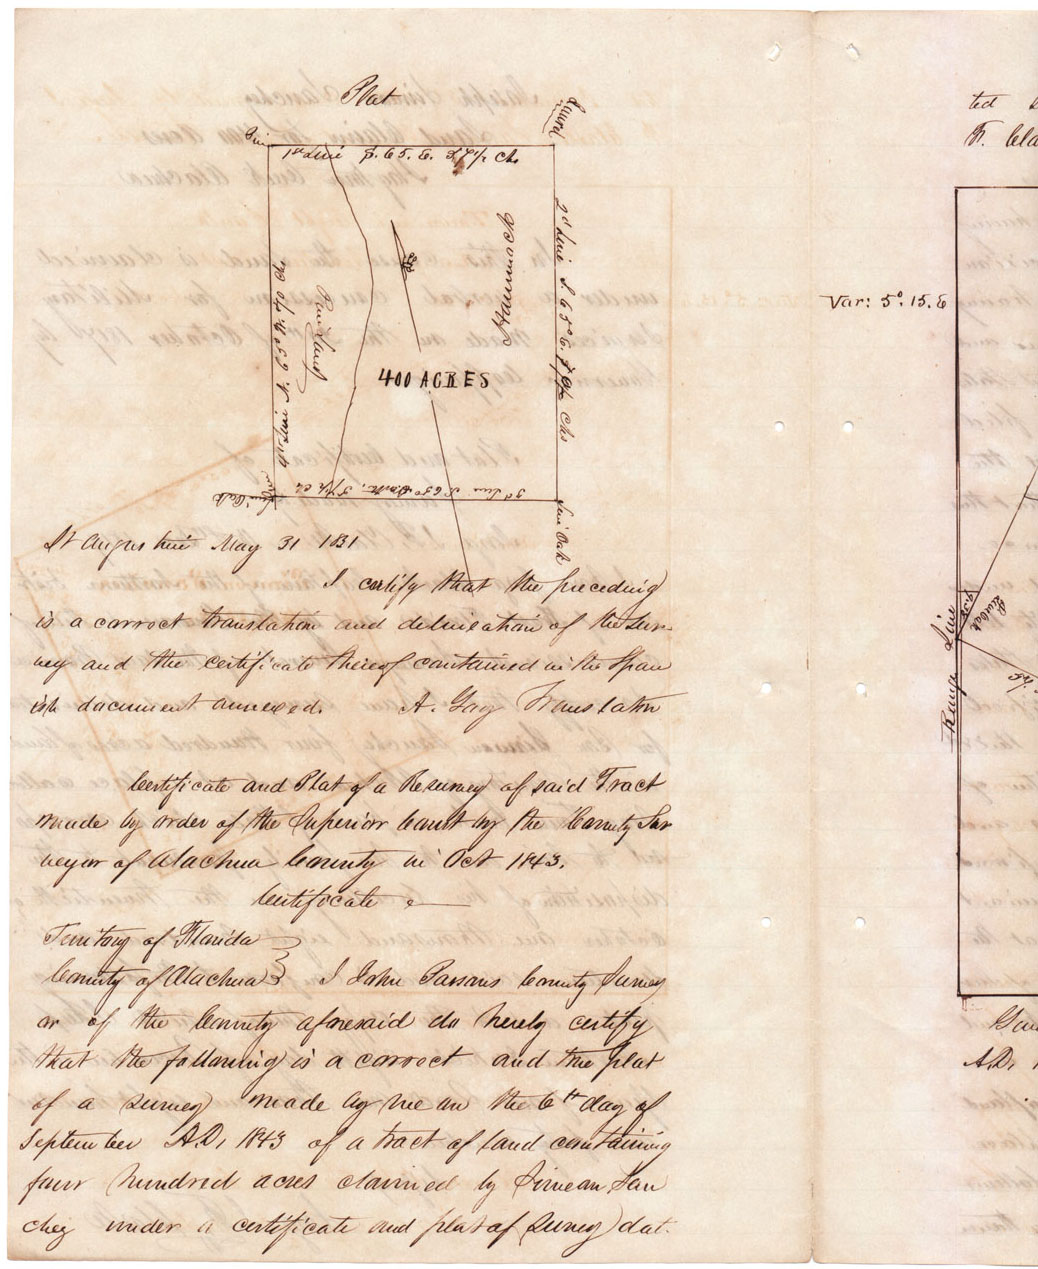 Plat
Pine
Laurel
1st Line S. 65. E. 37 1/2 Ch.
2d Line S 65° E. Chs
Hammock
400 ACRES
3d Line
Live Oak
Live Oak
St Augustine May 31 1831
I certify that the preceding
is a correct translation and delineation of the Sur-
vey and the certificate thereof contained in the Span
ish document annexed. A. Gay Translator
Certificate and Plat of a Resurvey of said Tract
made by order of the Superior Court by the County Sur
veyor of Alachua County in Oct 1843.
Certificate
Territory of Florida
County of Alachua } I John Parsons County Survey
or of the County aforesaid do hereby certify
that the following is a correct and true plat
of a survey made by me on the 6th day of
September A.D, 1843 of a tract of land containing
four hundred acres claimed by Simeon San
chez under a certificate and plat of Survey dat.
ted
F. Cla
Var: 5°. 15. E
Live Oak
Range Line
A.D.